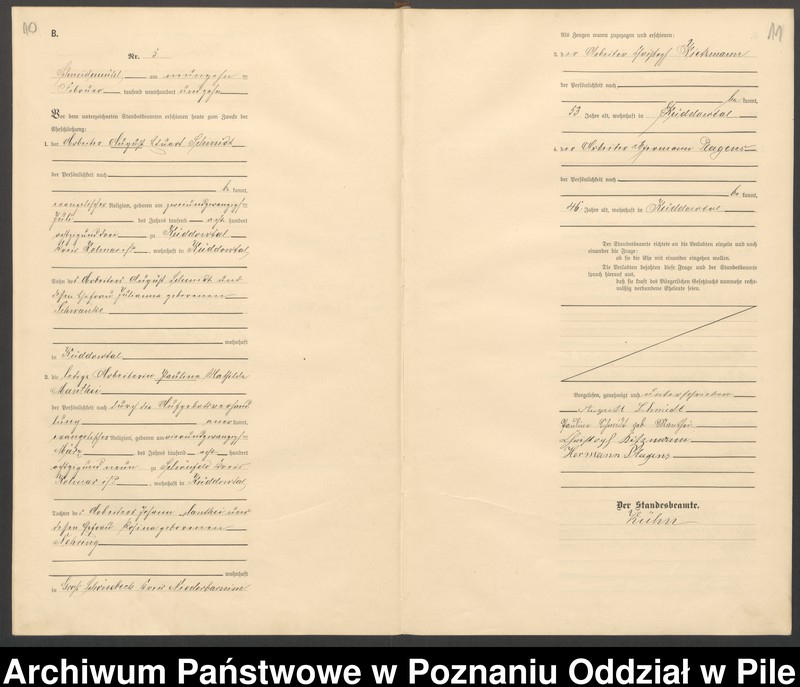 10
B.
Nr. 5
Schneidemühl am neunzehn =
Februar tausend neunhundert und zehn
Vor dem unterzeichneten Standesbeamten erschienen heute zum Zwecke der
Eheschließung:
1. der Arbeiter August Eduard Schmidt
der Persönlichkeit nach
be kannt,
evangelischer Religion, geboren am zweiundzwanzigsten
Juli des Jahres tausend acht hundert
achtzigunddrei zu Küddowtal
Kreis Kolmar i/P., wohnhaft in Küddowtal
Sohn des Arbeiters August Schmidt und
dessen Ehefrau Julianna geborenen
Schwanke
wohnhaft
in Küddowtal
2. die ledige Arbeiterin Pauline Mathilde
Manthei
der Persönlichkeit nach durch die Aufgebotsverhand
lung anerkannt,
evangelischer Religion, geboren am vierundzwanzigsten
März des Jahres tausend acht hundert
achtzigundneun zu Schönfeld Kreis
Kolmar i/P., wohnhaft in Küddowtal
Tochter des Arbeiters Johann Manthei und
dessen Ehefrau Rosina geborenen
Nehring
wohnhaft
in Groß Schönebeck Kreis Niederbarnim
11
Als Zeugen waren zugezogen und erschienen:
3. der Arbeiter Christoph
der Persönlichkeit nach
be kannt,
53 Jahre alt, wohnhaft in Küddowtal
4. der Arbeiter Hermann Plagens
der Persönlichkeit nach
be kannt,
46 Jahre alt, wohnhaft in Küddowtal
Der Standesbeamte richtete an die Verlobten einzeln und nach
einander die Frage:
ob sie die Ehe mit einander eingehen wollen.
Die Verlobten bejahten diese Frage und der Standesbeamte
sprach hierauf aus,
daß sie kraft des Bürgerlichen Gesetzbuchs nunmehr recht-
mäßig verbundene Eheleute seien.
Vorgelesen, genehmigt und unterschrieben
August Schmidt
Pauline Schmidt geb Manthei
Christoph
Hermann Plagens
Der Standesbeamte.
Kühn
Archiwum Państwowe w Poznaniu Oddział w Pile